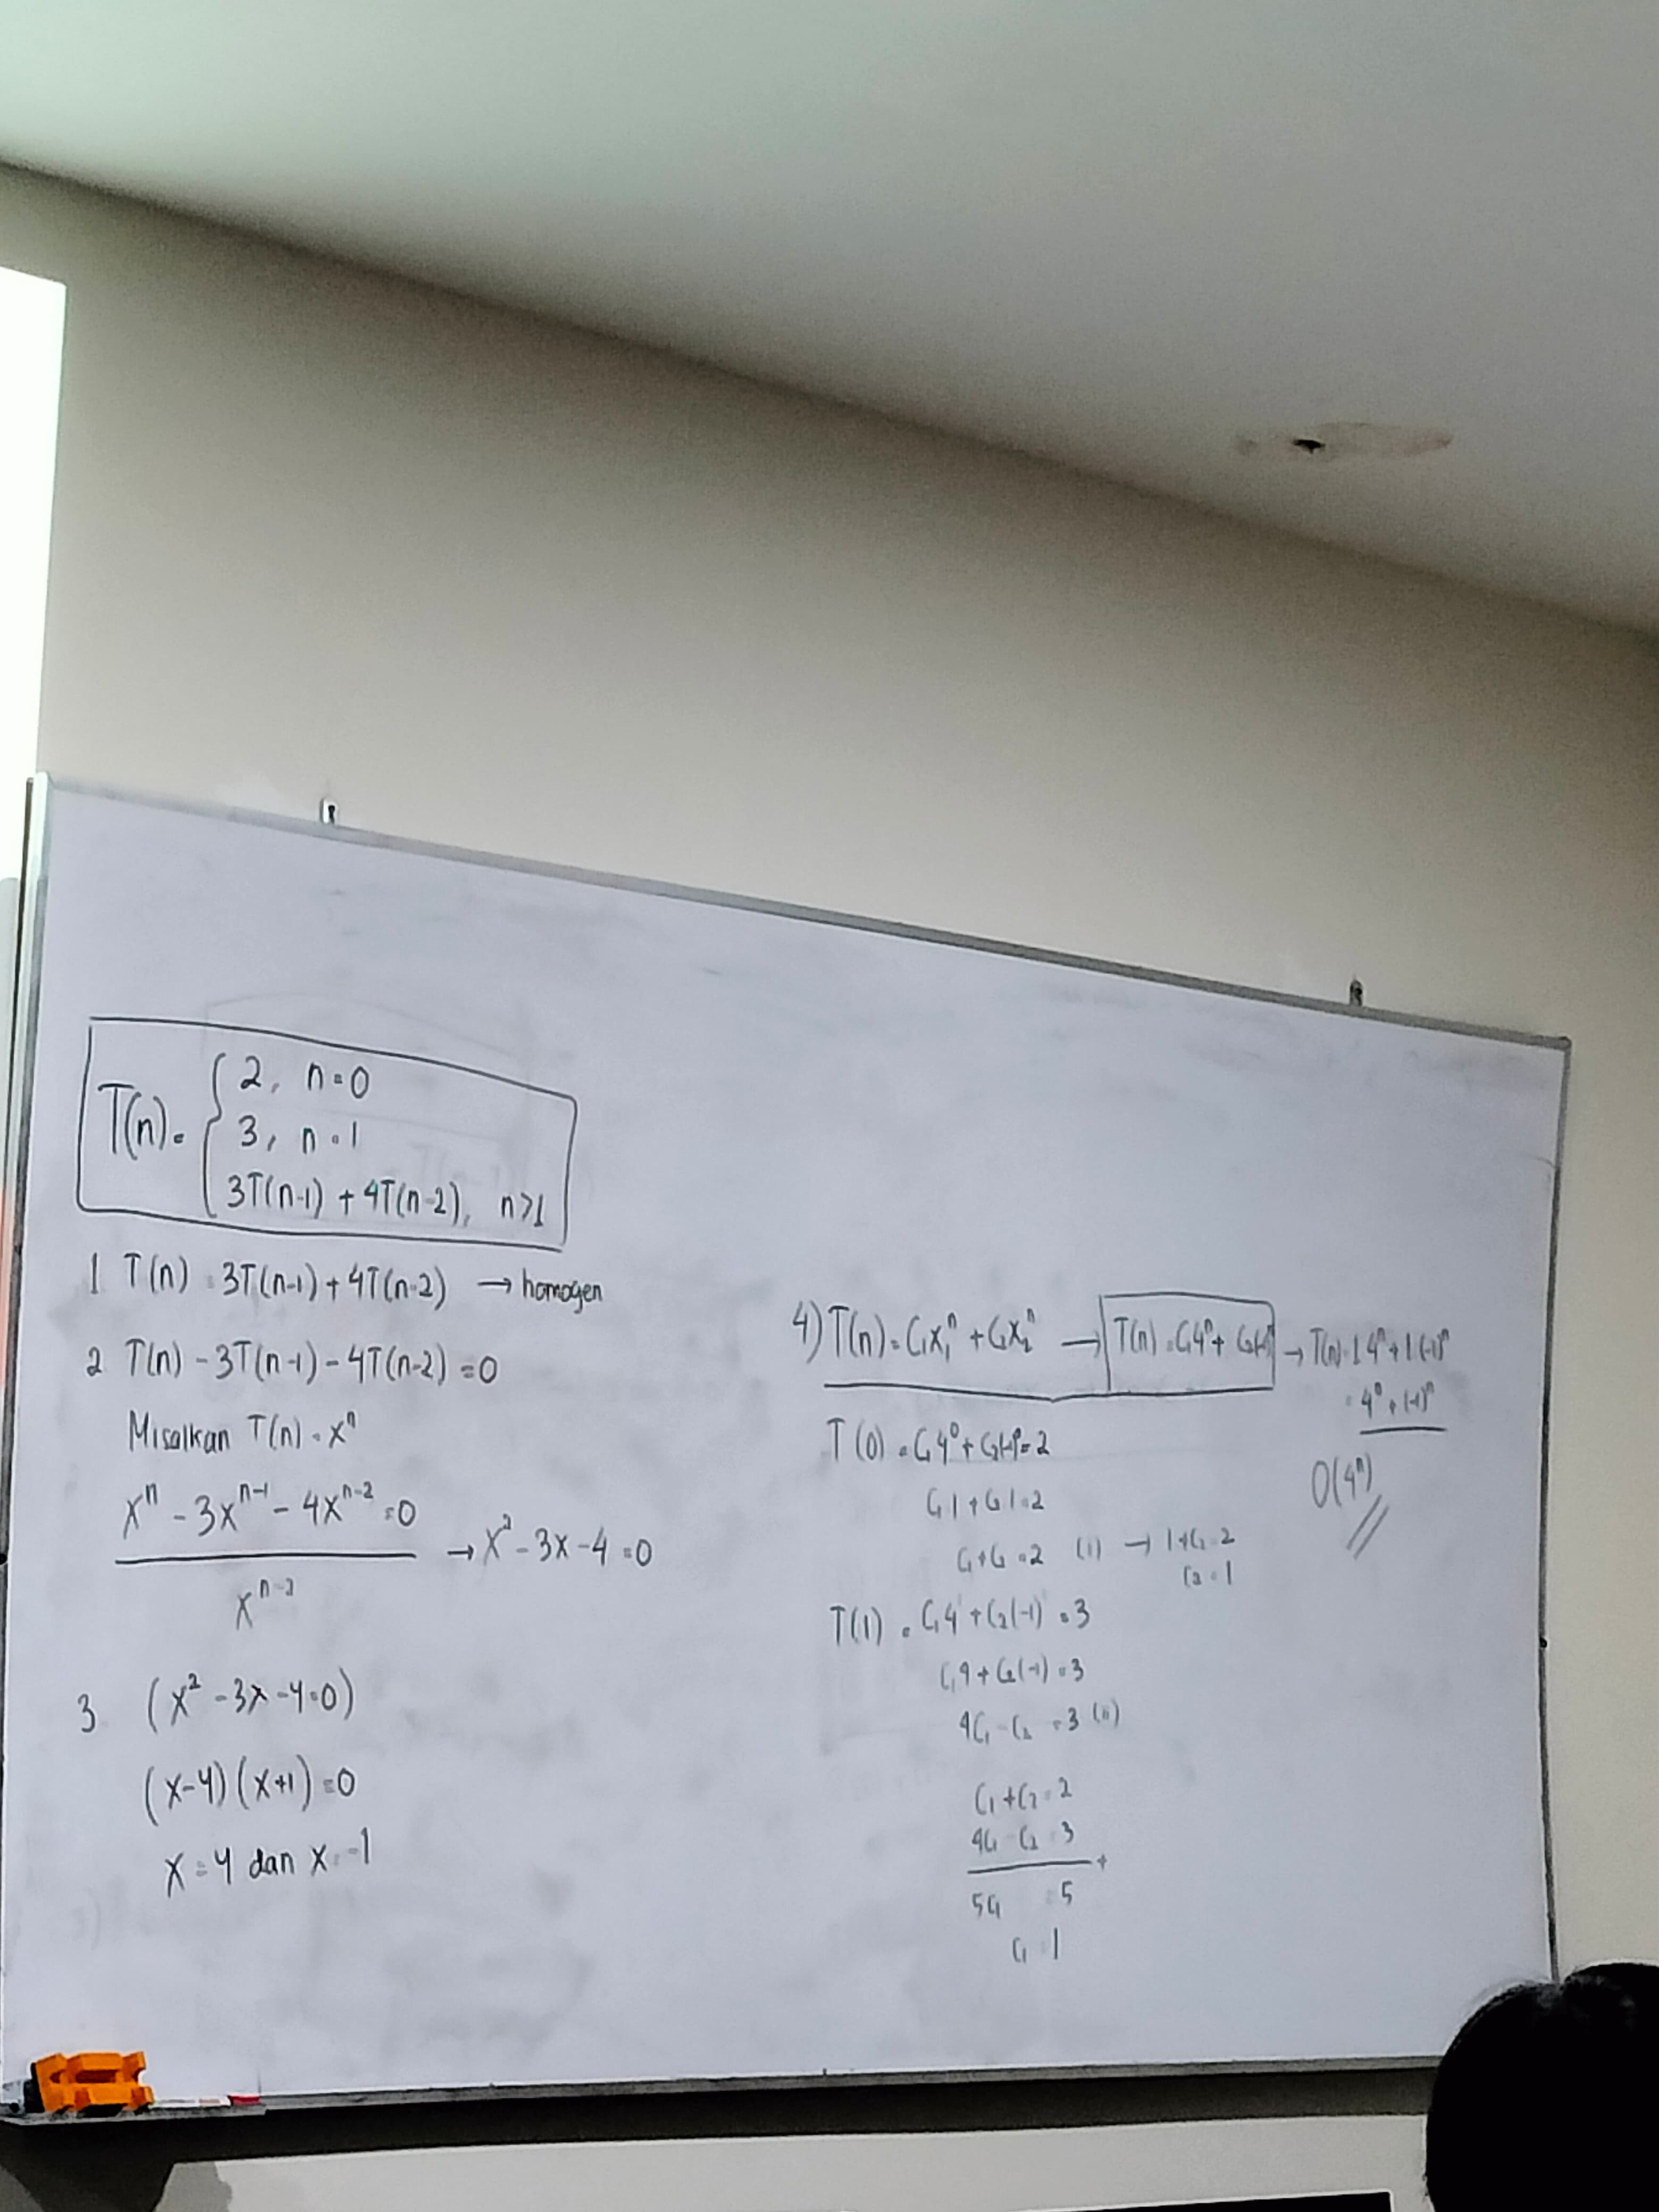 T(n) = { 2, n=0
3, n=1
3T(n-1) + 4T(n-2), n>1
1 T(n) = 3T(n-1) + 4T(n-2) → homogen
2 T(n) - 3T(n-1) - 4T(n-2) = 0
Misalkan T(n) = xⁿ
xⁿ - 3xⁿ⁻¹ - 4xⁿ⁻² = 0
xⁿ⁻² → x² - 3x - 4 = 0
3 (x² - 3x - 4 = 0)
(x-4)(x+1) = 0
x = 4 dan x = -1
4) T(n) = C₁x₁ⁿ + C₂x₂ⁿ → T(n) = C₁4ⁿ + C₂(-1)ⁿ → T(n) = 1.4ⁿ + 1(-1)ⁿ
= 4ⁿ + (-1)ⁿ
O(4ⁿ)
T(0) = C₁4⁰ + C₂(-1)⁰ = 2
C₁1 + C₂1 = 2
C₁ + C₂ = 2 (i) → 1 + C₂ = 2
C₂ = 1
T(1) = C₁4¹ + C₂(-1)¹ = 3
C₁4 + C₂(-1) = 3
4C₁ - C₂ = 3 (ii)
C₁ + C₂ = 2
4C₁ - C₂ = 3 +
5C₁ = 5
C₁ = 1